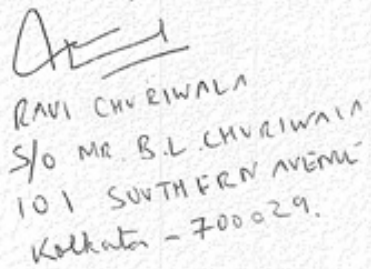 RAVI CHURIWALA
S/O MR. B.L. CHURIWALA
101 SOUTHERN AVENUE
Kolkata - 700029.